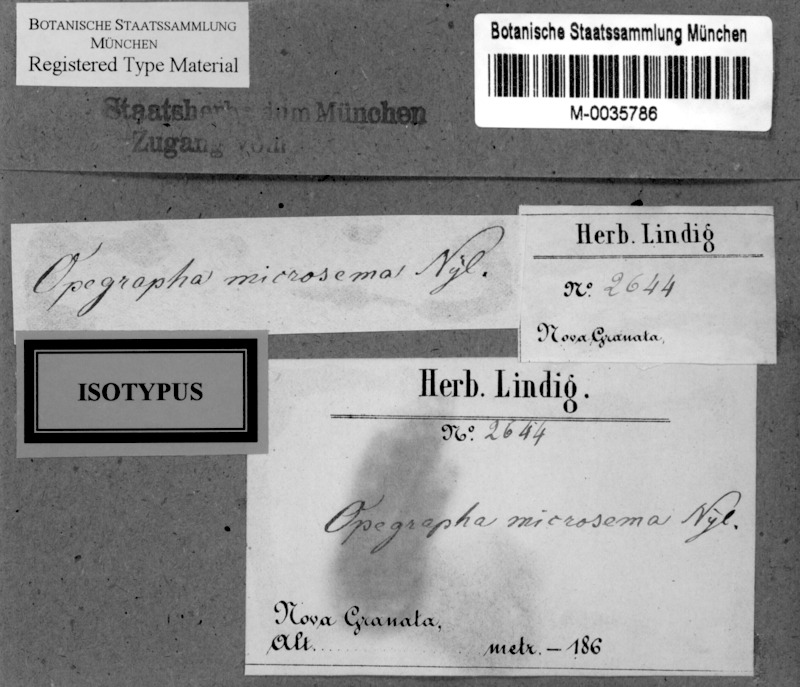 BOTANISCHE STAATSSAMMLUNG
MÜNCHEN
Registered Type Material
Botanische Staatssammlung München
M-0035786
Staatsherbarium München
Zugang vom
Opegrapha microsema Nyl.
Herb. Lindig
No. 2644
Nova Granata,
ISOTYPUS
Herb. Lindig.
No. 2644
Opegrapha microsema Nyl.
Nova Granata,
Alt. metr. – 186